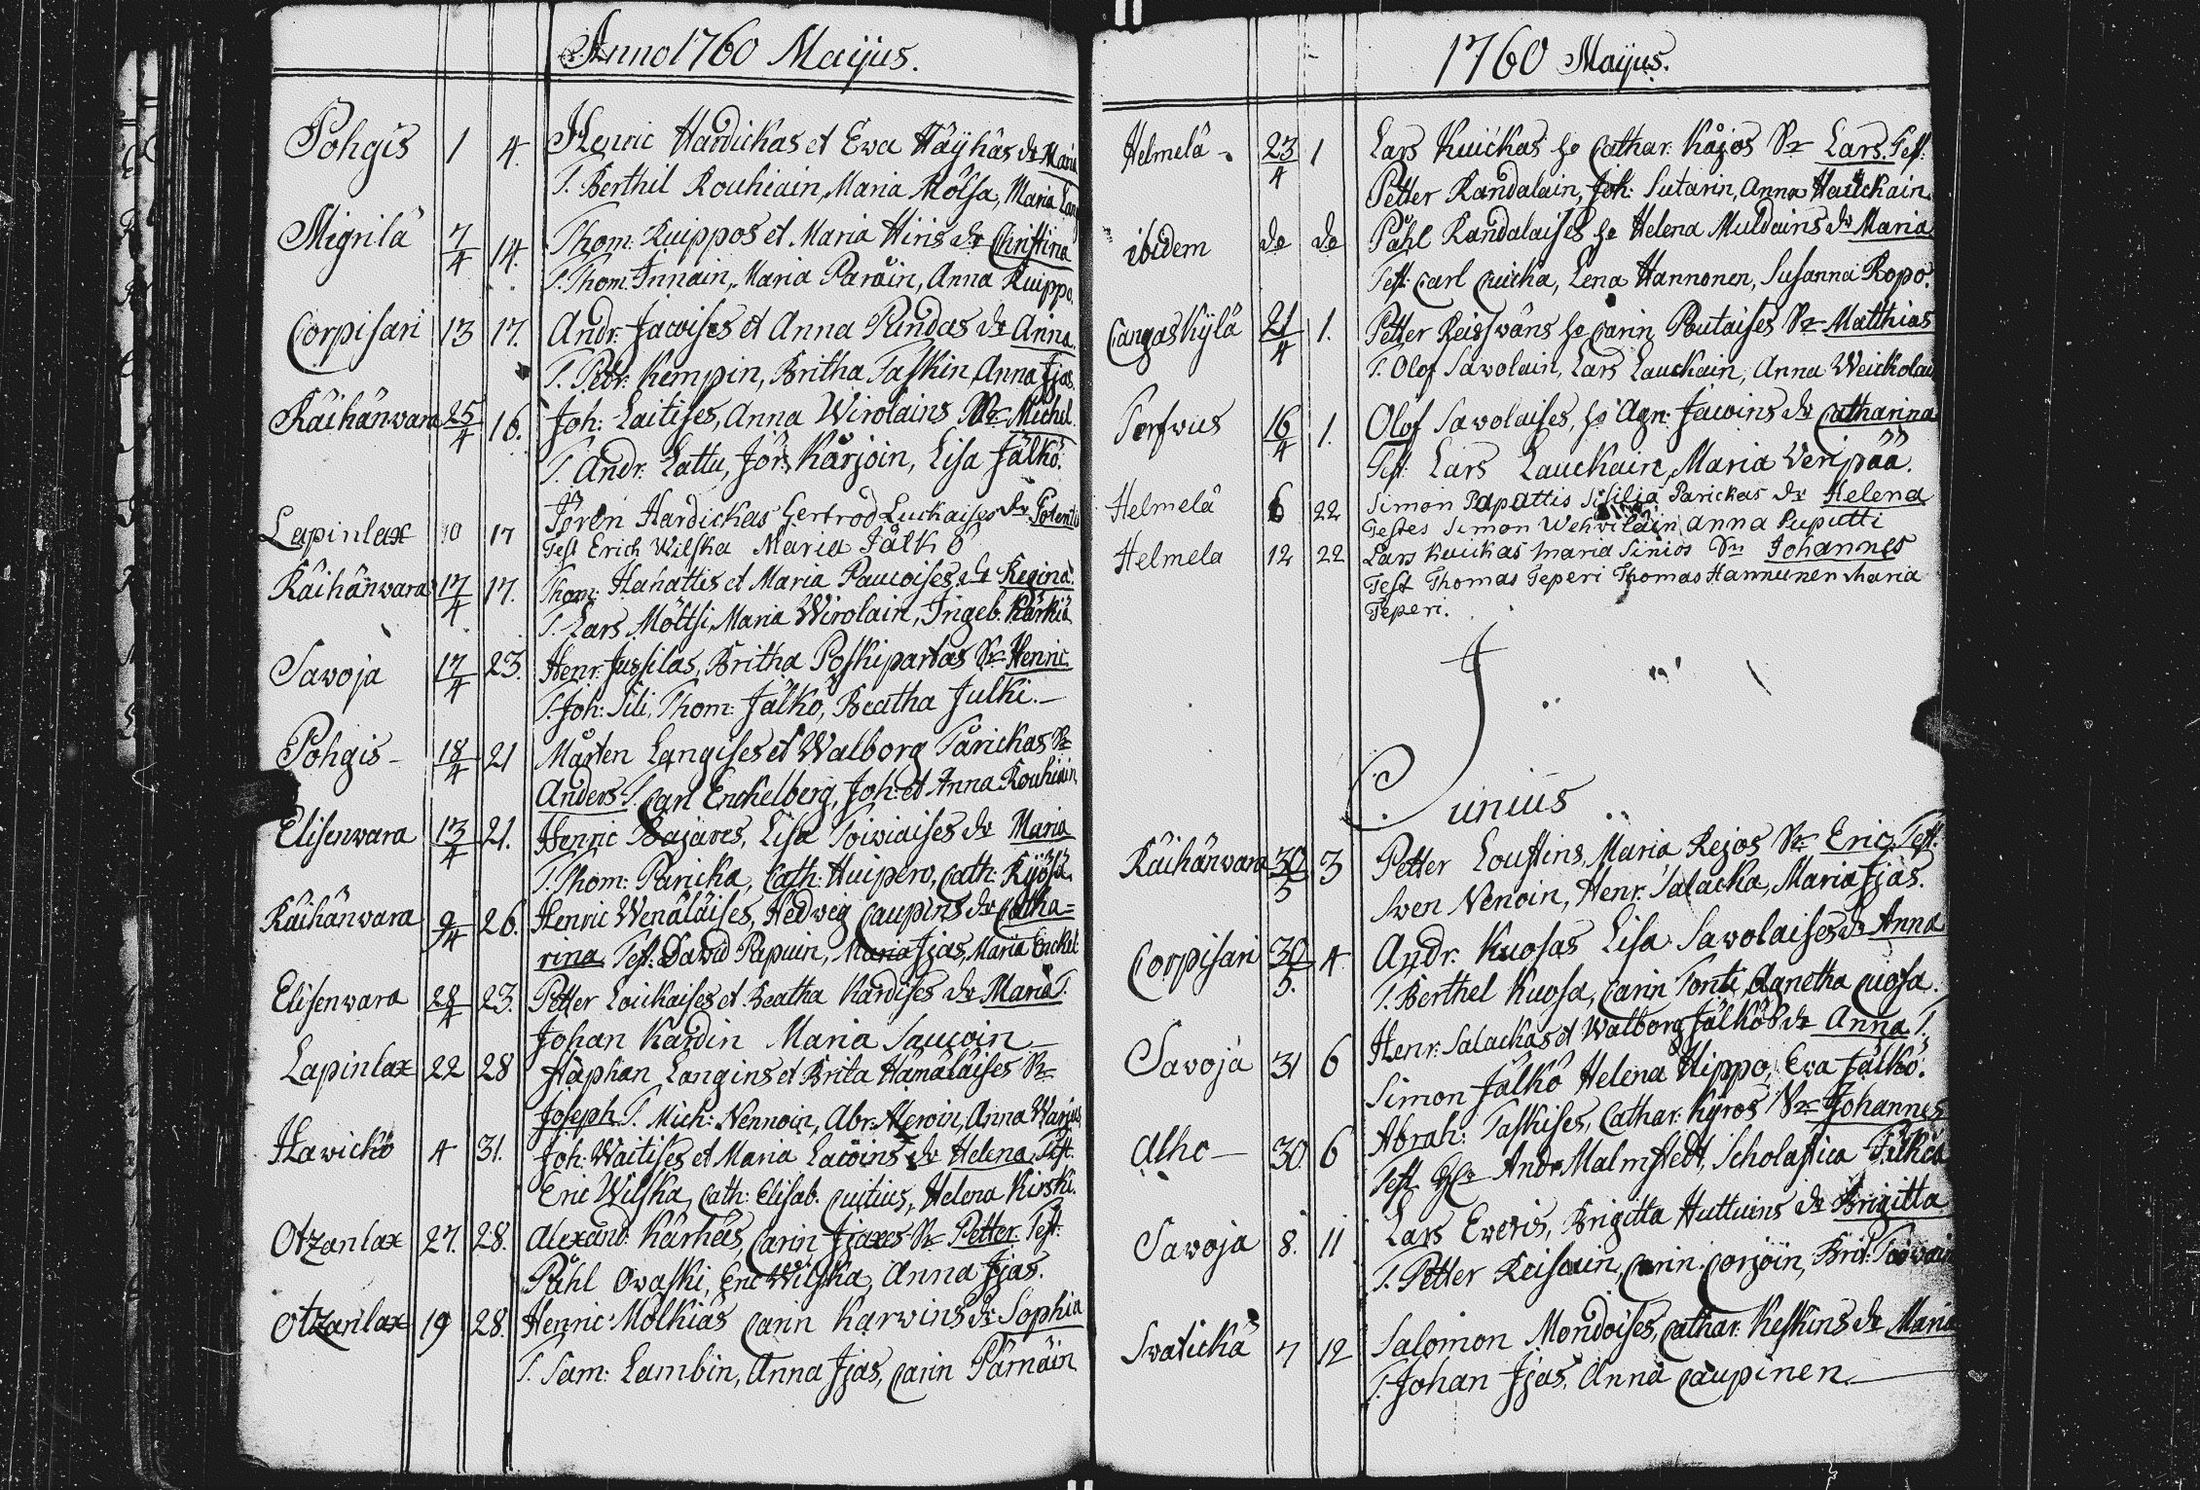 Anno 1760 Maijus.
Pohgis 1 4. Henric Hardickas et Ewa Häyhäs dr Maria
T. Berthil Rouhiain, Maria Mölsä, Maria
Mignilä 7/4 14. Thom: Kuippos et Maria Hiris dr Christina
T. Thom: Innain, Maria Paräin, Anna Kuippo.
Corpisari 13 17. Andr: Jacoises et Anna Pundas dr Anna.
T. Petr: Kempin, Britha Taskin, Anna Ijas.
Käihänwara 25/4 16. Joh: Laitises, Anna Wirolains Sr Michel.
T. Andr: Lattu, Jör: Kärjöin, Lisa Jälkö.
Lapinlax 10 17 Jören Hardickas Gertrod Luckaises dr
Test Erich Wilska Maria Jälkö
Käihänwara 17/4 17. Thom: Hanattis et Maria Paucoises dr Regina.
T. Lars Möttsi, Maria Wirolain, Ingeb. Kärkiä
Savoja 17/4 23. Henr: Jussilas, Britha Poskipartas Sr Henric
T. Joh: Sili, Thom: Jälkö, Beatha Julki.
Pohgis 18/4 21 Mårten Langises et Walborg Tarickas Sr
Anders T. Carl Enckelberg, Joh: et Anna Rouhiain
Elisenvara 13/4 21. Henric Bajares, Lisa Toiviaises dr Maria
T. Thom: Paricka, Cath: Huipero, Cath: Kyösä.
Käihänvara 9/4 26. Henric Wenäläises, Hedveg Caupins dr Catha=
rina Test: David Papuin, Maria Ijas, Maria Enckel
Elisenvara 28/4 23. Petter Loickaises et Beatha Kardises dr Maria T.
Johan Kardin Maria Saucoin
Lapinlax 22 28 Staphan Langins et Brita Hämäläises Sr
Joseph T. Mich: Nennoin, Abr: Meroin, Anna
Hawickö 4 31. Joh: Waitises et Maria Lacoins dr Helena Test.
Eric Wilska, Cath: Elisab. Cuitius, Helena Kirski.
Otzanlax 27. 28. Alexand: Kärhäs, Carin Ijaxes Sr Petter Test:
Påhl Ovaski, Eric Wilska, Anna Ijas.
Otzanlax 19 28. Henric Molkias Carin Karwins dr Sophia
T. Sam: Lambin, Anna Ijas, Carin Pärnäin
1760 Maijus.
Helmelä 23/4 1 Lars Kuickas ho Cathar: Kåjos Sr Lars. Test:
Petter Randalain, Joh: Sutarin, Anna Hauckain.
ibidem do do Påhl Randalaises ho Helena Muldains dr Maria
Test: Carl Cuicka, Lena Hannonen, Susanna Ropo.
Cangaskylä 21/4 1. Petter Reisswäns ho Carin Poutaises Sr Matthias
T. Olof Savolain, Lars Lauckain, Anna Weickolain
Torfvus 16/4 1. Olof Savolaises, ho Agn: Jacoins dr Catharina
Test: Lars Lauckain, Maria Veripää.
Helmelä 6 22 Simon Papattis Sisilia Parickas dr Helena
Testes Simon Wehviläin anna Puputti
Helmela 12 22 Lars Kuickas Maria Sinios Sn Johannes
Test Thomas Teperi Thomas Hannunen Maria
Teperi.
Junius
Käihänvara 30/5 3 Petter Loustins, Maria Rejos Sr Eric Test:
Sven Nenoin, Henr: Salacka, Maria Ijäs.
Corpisari 30/5. 4 Andr: Kuosas Lisa Savolaises dr Anna
T. Berthel Kuosa, Carin Tonti, Agnetha Cuosa.
Savoja 31 6 Henr: Salackas et Walborg Jälkös dr Anna T.
Simon Jälkö Helena Hippo, Eva Jälkö.
Alho 30 6 Abrah: Taskises, Cathar: Kyros Sr Johannes
Test Andr Malmstedt, Scholastica
Savoja 8. 11 Lars Eweris, Brigitta Huttuins dr Brigitta
T. Petter Reisain, Carin Corjöin, Brit:
Svatickä 7 12 Salomon Mondoises, Cathar: Keskins dr Maria
T. Johan Ijäs, Anna Caupinen.